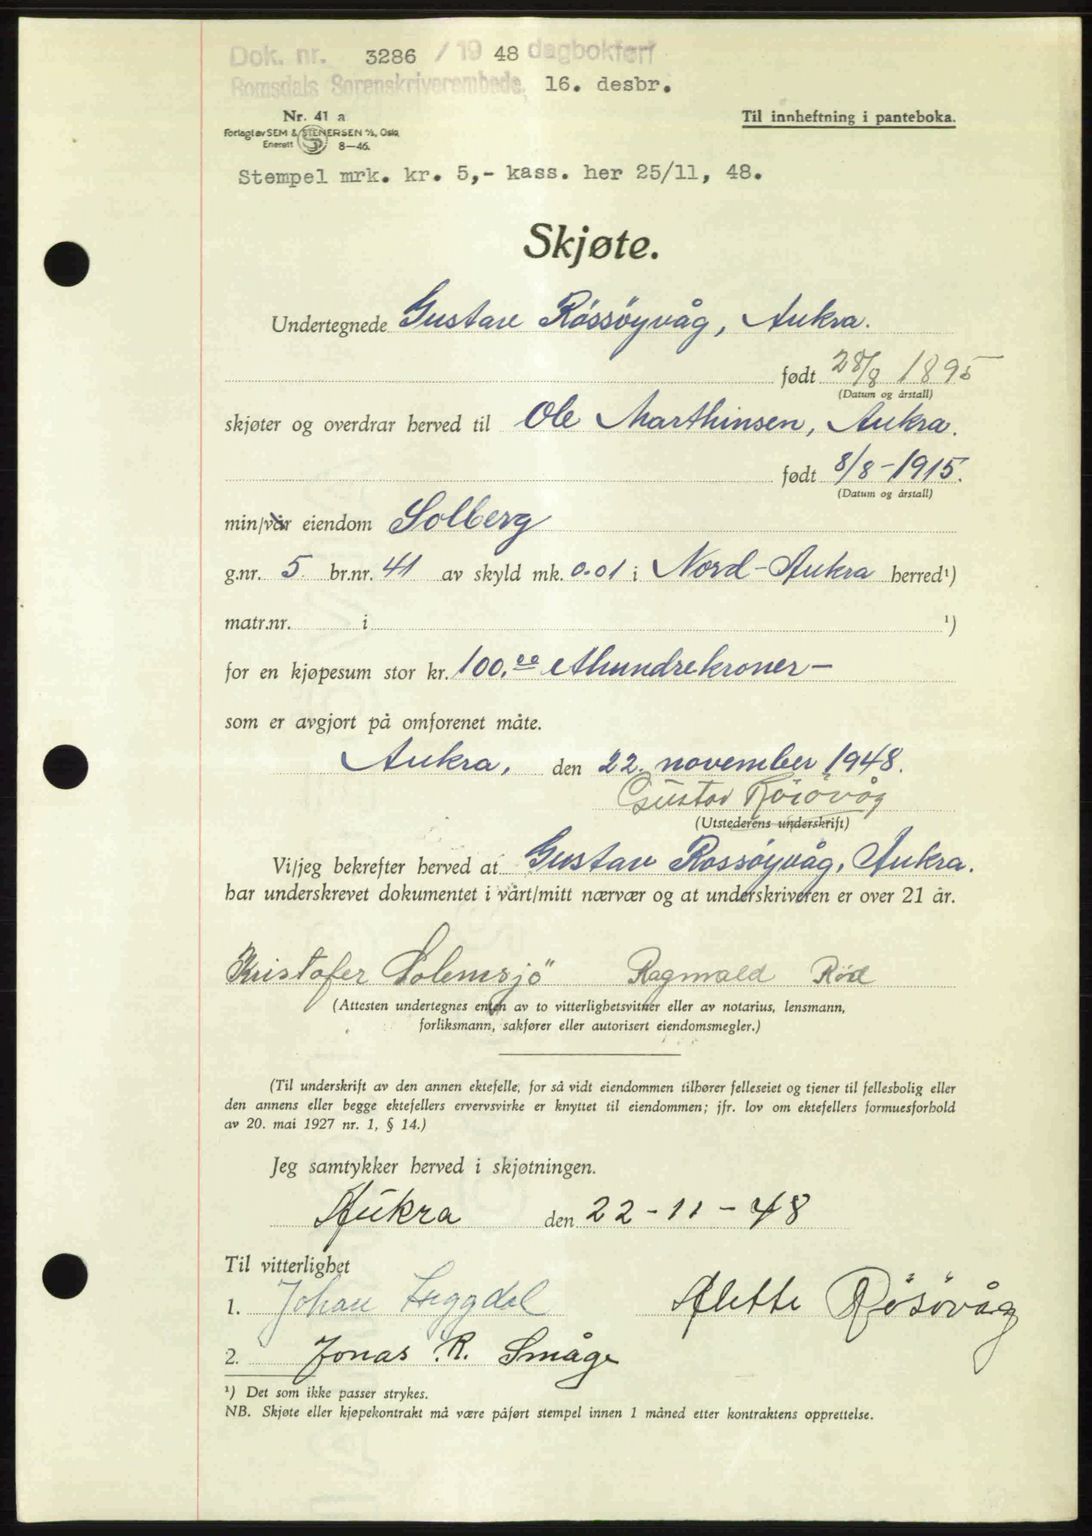 Dok. nr. 3286 / 1948 dagbokført
Romsdals Sorenskriverembede, 16. desbr.
Nr. 41 a
Til innheftning i panteboka.
Forlagt av SEM & STENERSEN A/S, Oslo
Enerett 8-46.
Stempel mrk. kr. 5,- kass. her 25/11, 48.
Skjøte.
Undertegnede Gustav Róssóyvåg, Aukra.
født 28/8 1895
(Datum og årstall)
skjøter og overdrar herved til Ole Marthinsen, Aukra.
født 8/8-1915.
(Datum og årstall)
min/vår eiendom Solberg
g.nr. 5 br.nr. 41 av skyld mk. 0.01 i Nord-Aukra herred¹)
matr.nr. i ¹)
for en kjøpesum stor kr. 100.00 etthundrekroner-
som er avgjort på omforenet måte.
Aukra, den 22. november 1948.
Gustav Rösövåg
(Utstederens underskrift)
Vi/jeg bekrefter herved at Gustav Rossøyvåg, Aukra.
har underskrevet dokumentet i vårt/mitt nærvær og at underskriveren er over 21 år.
Kristofer Solemsjö Ragnvald Rød
(Attesten undertegnes enten av to vitterlighetsvitner eller av notarius, lensmann,
forliksmann, sakfører eller autorisert eiendomsmegler.)
(Til underskrift av den annen ektefelle, for så vidt eiendommen tilhører felleseiet og tjener til fellesbolig eller
den annens eller begge ektefellers ervervsvirke er knyttet til eiendommen; jfr. lov om ektefellers formuesforhold
av 20. mai 1927 nr. 1, § 14.)
Jeg samtykker herved i skjøtningen.
Aukra den 22-11-48
Til vitterlighet
1. Johan Alette Rösövåg
2. Jonas R. Småge
¹) Det som ikke passer strykes.
NB. Skjøte eller kjøpekontrakt må være påført stempel innen 1 måned etter kontraktens opprettelse.